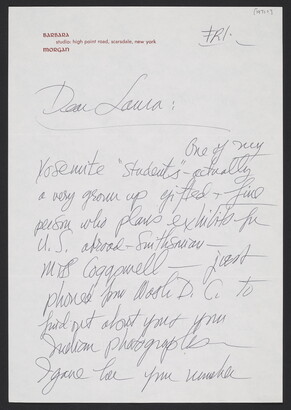 BARBARA
studio: high point road, scarsdale, new york
MORGAN
FRI.
Dear Laura:
One of my
Yosemite "students" - actually
a very grown up gifted + fine
person who plans exhibits for
U.S. abroad - Smithsonian -
Mrs Coggswell - just
phoned from Wash D.C. to
find out about you + your
Indian photographs -
I gave her your number